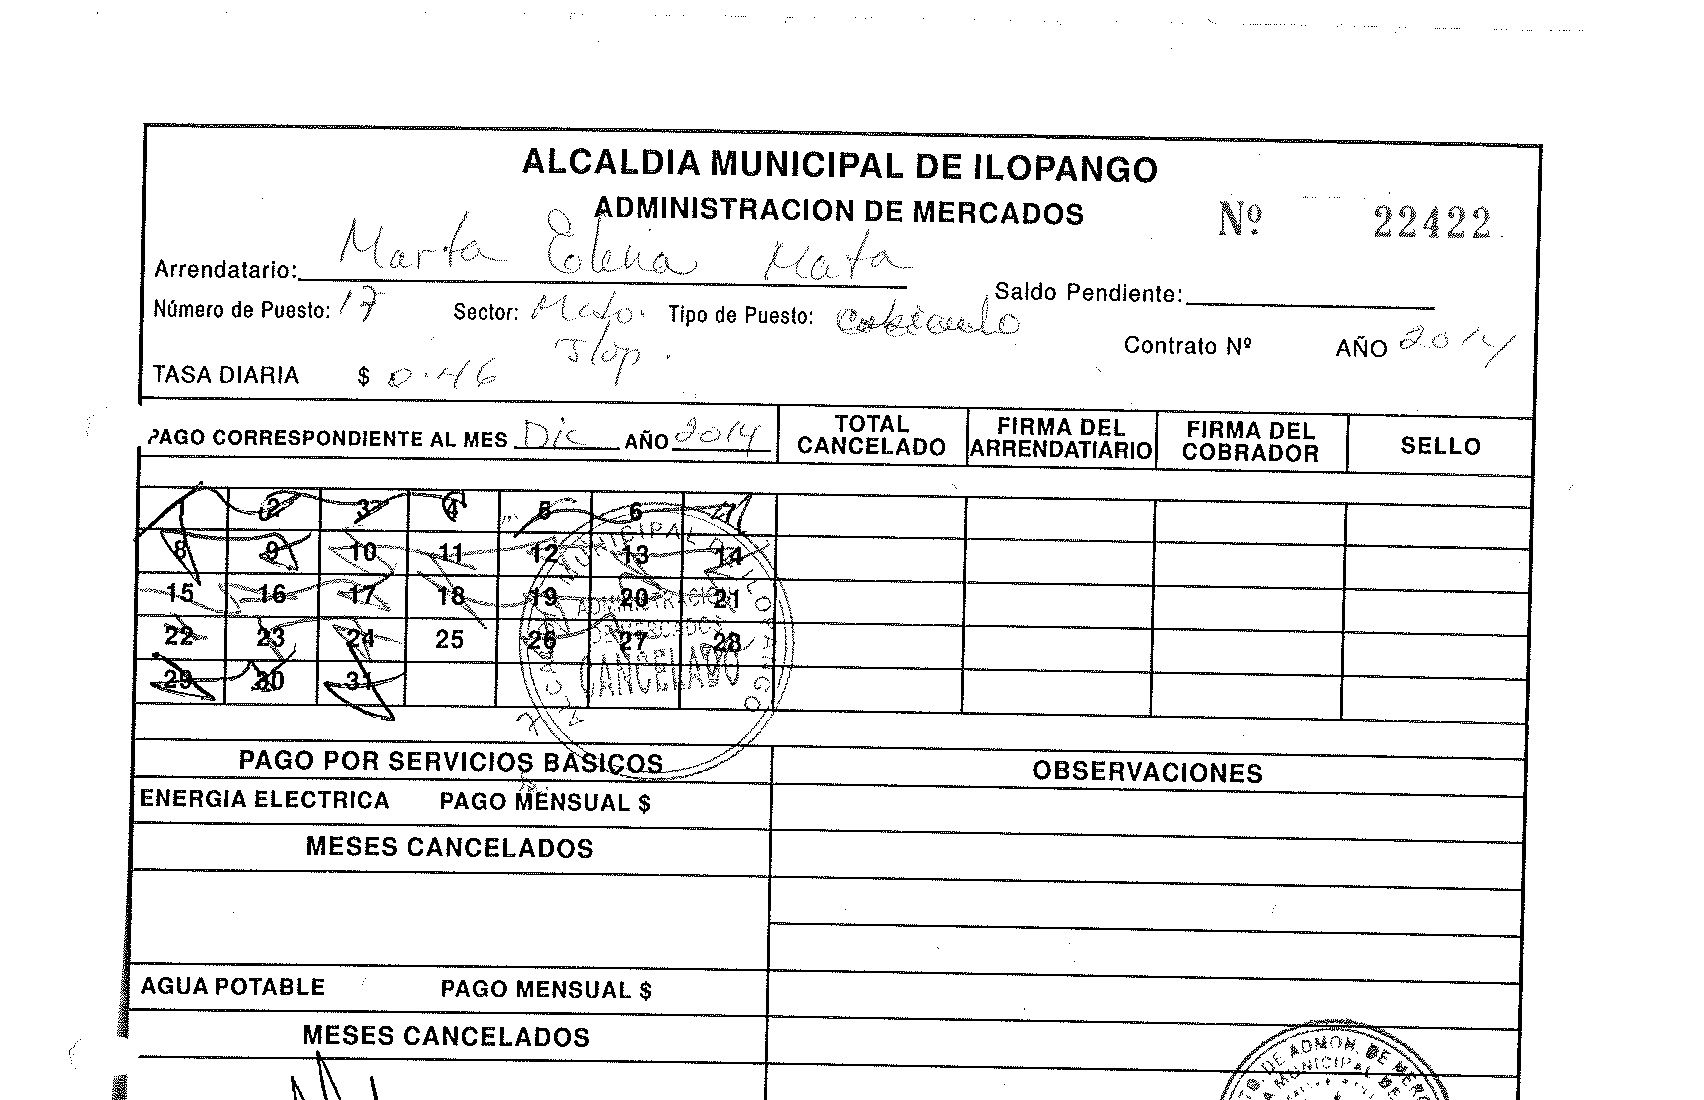 ALCALDIA MUNICIPAL DE ILOPANGO
ADMINISTRACION DE MERCADOS
Nº 22422
Arrendatario: Marta Elena Mata
Saldo Pendiente:
Número de Puesto: 17 Sector: Mcdo. Ilop. Tipo de Puesto:
Contrato Nº AÑO 2014
TASA DIARIA $ 0.46
PAGO CORRESPONDIENTE AL MES Dic AÑO 2014
TOTAL CANCELADO
FIRMA DEL ARRENDATIARIO
FIRMA DEL COBRADOR
SELLO
2 3 4 5 6 7
8 9 10 11 12 13 14
15 16 17 18 19 20 21
22 23 24 25 26 27 28
29 30 31
ALCALDIA MUNICIPAL DE ILOPANGO
ADMINISTRACION
DE MERCADOS
CANCELADO
PAGO POR SERVICIOS BASICOS
OBSERVACIONES
ENERGIA ELECTRICA PAGO MENSUAL $
MESES CANCELADOS
AGUA POTABLE PAGO MENSUAL $
MESES CANCELADOS
DE ADMON. DE MERC
MUNICIPAL DE